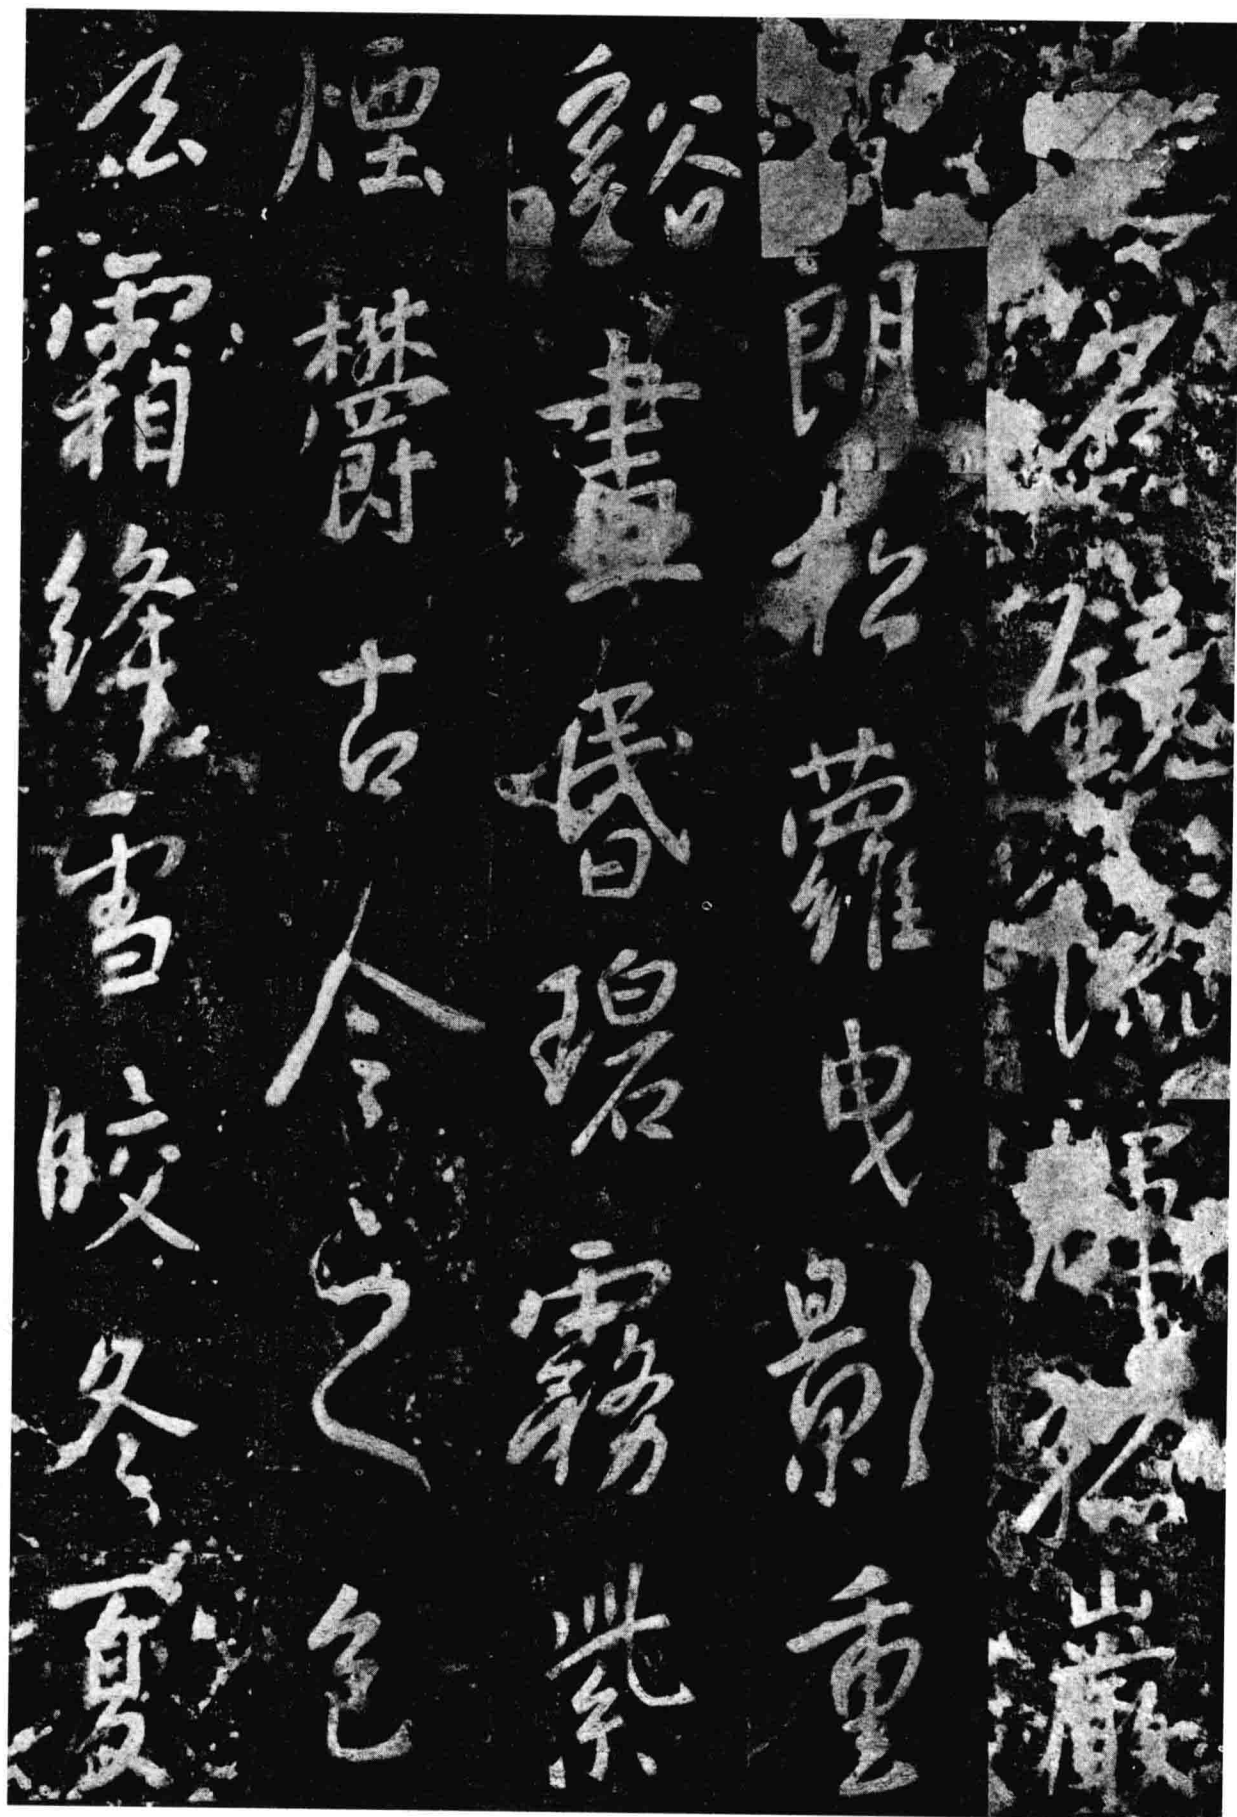 石鏡流輝孤巖
朗松蘿曳影重
谿晝昬碧霧紫
煙欝古今之色
玄霜絳雪皎冬夏